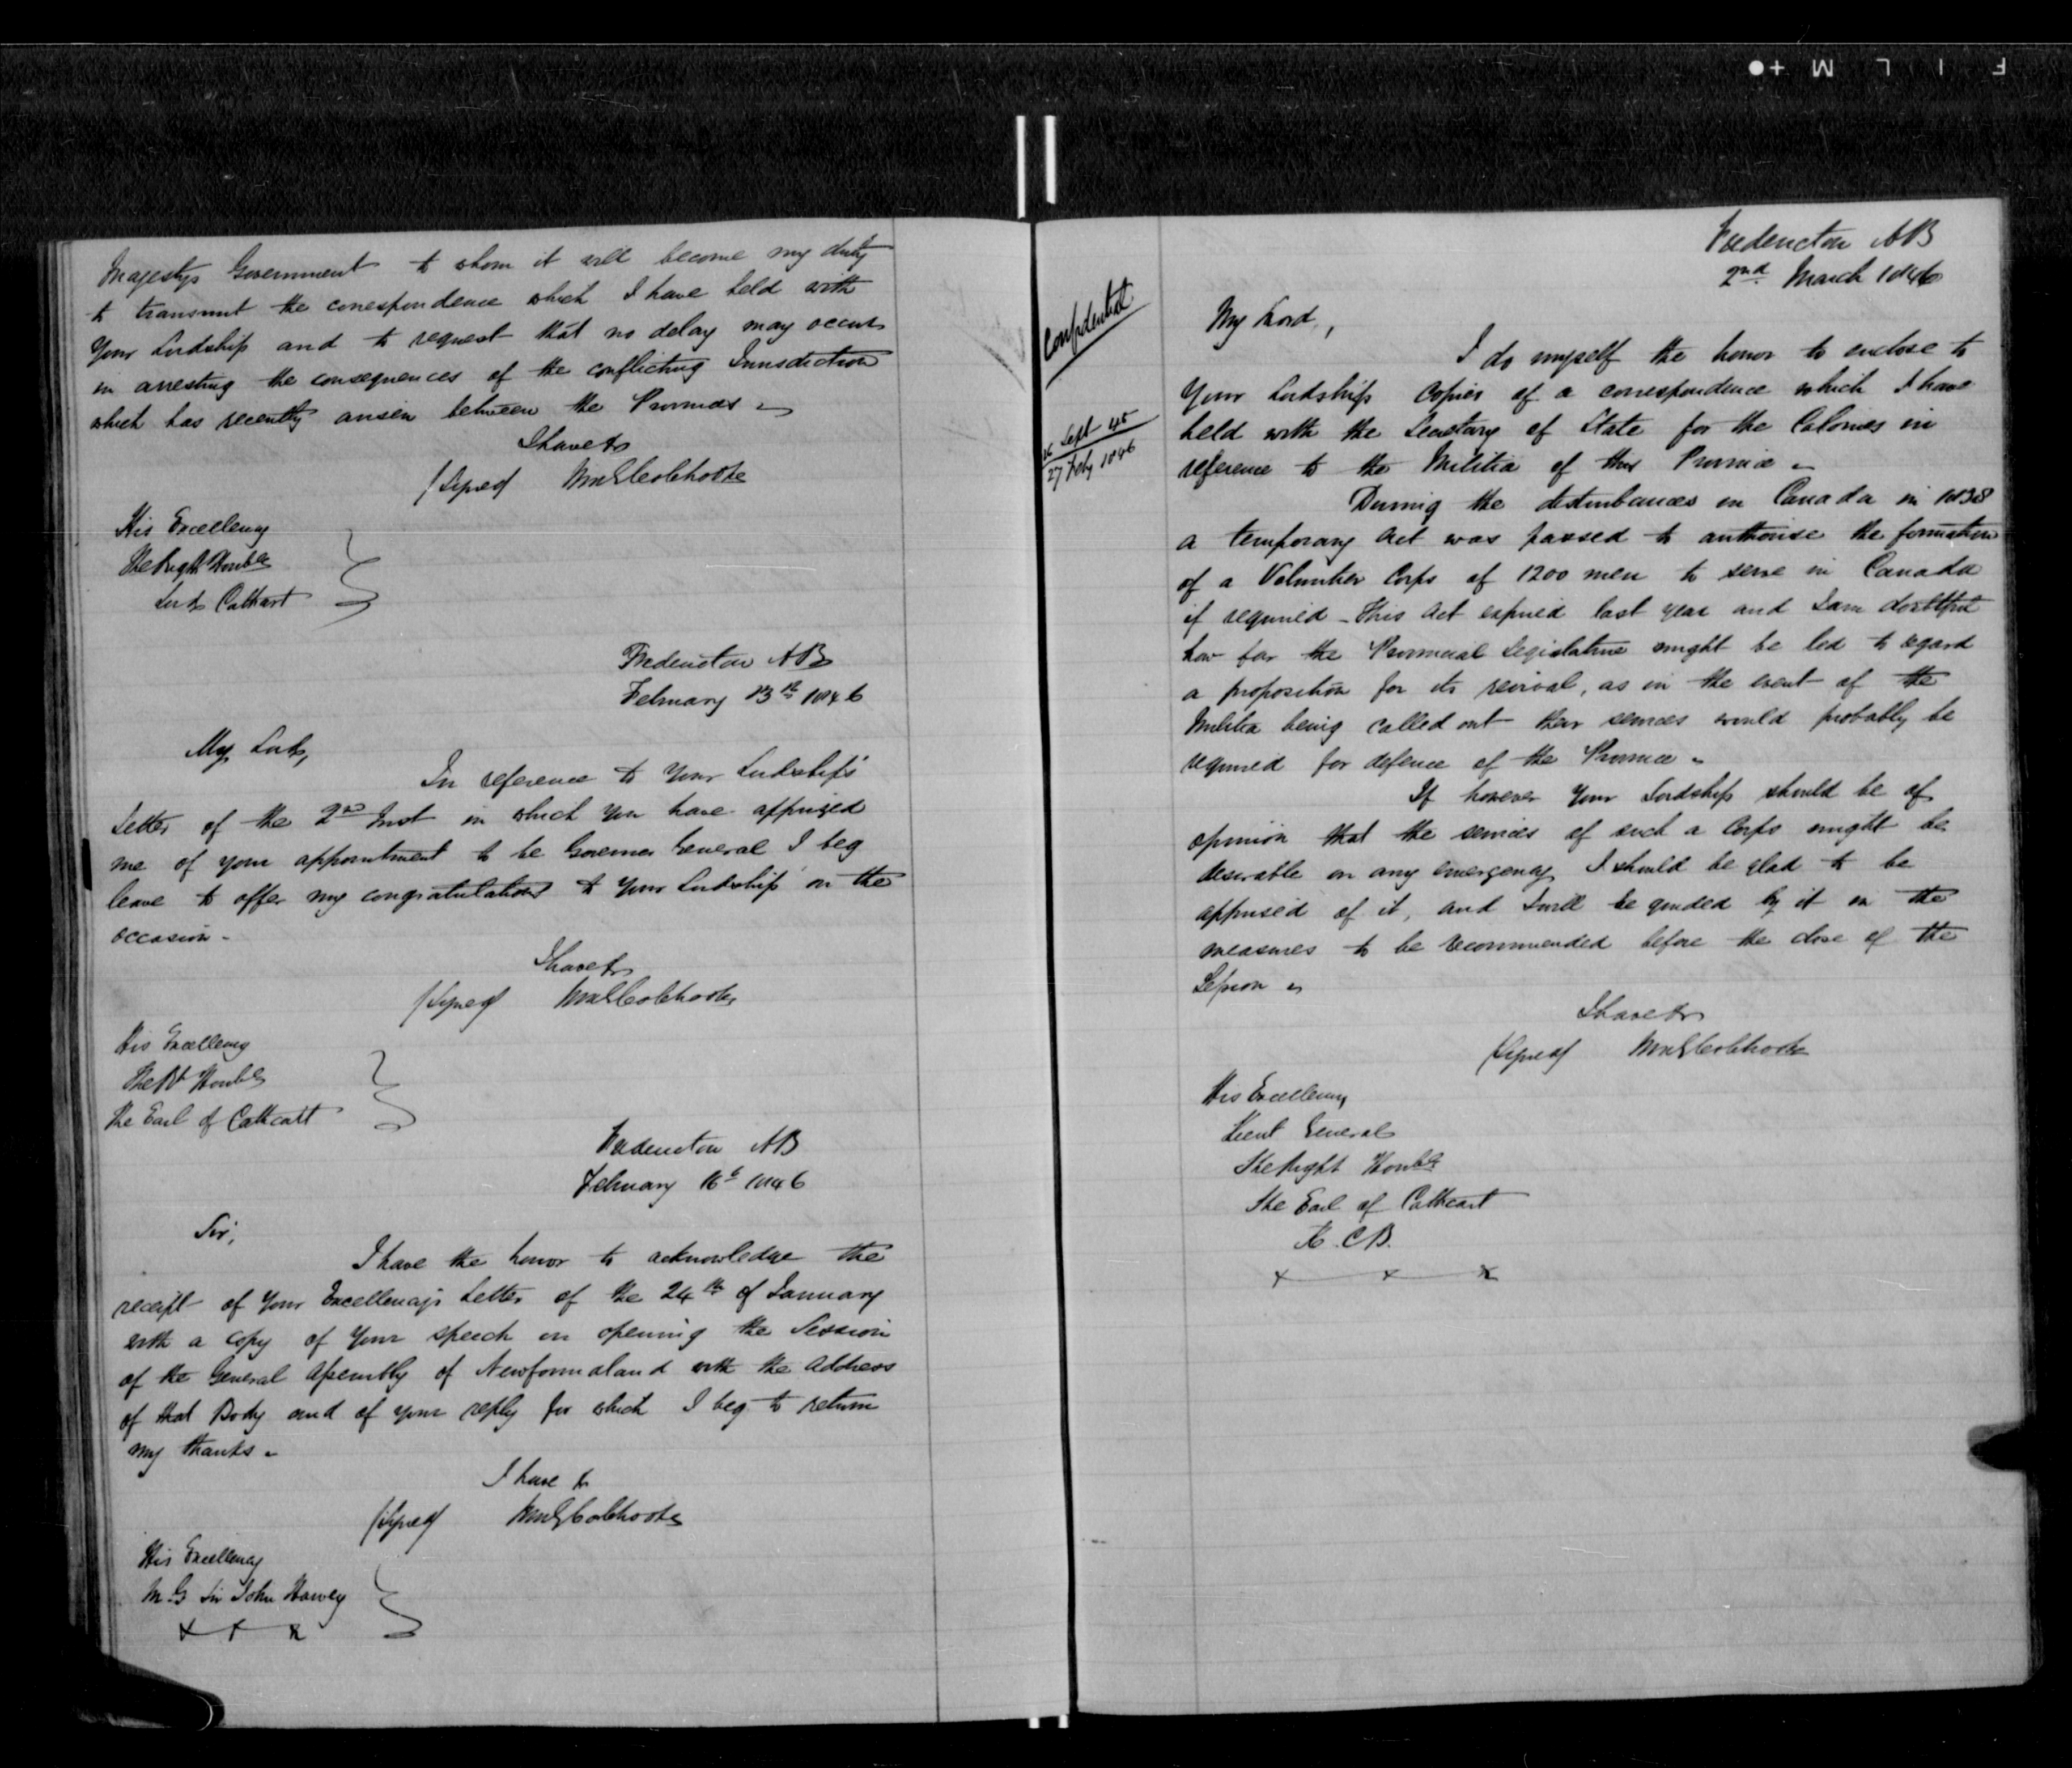 Majestys Government to whom it will become my duty
to transmit the correspondence which I have held with
Your Lordship and to request that no delay may occur
in arresting the consequences of the conflicting Jurisdiction
which has recently arisen between the Provinces
I have &c
(Signed) WmGColebrooke
His Excellency
The Right Honble
Lord Cathcart
Fredericton NB
February 13th 1846
My Lord,
In reference to Your Lordship's
Letter of the 2nd Inst in which you have apprized
me of your appointment to be Governor General I beg
leave to offer my congratulations to Your Lordship on the
occasion -
I have &c
(Signed) WmGColebrooke
His Excellency
The Rt Honble
The Earl of Cathcart
Fredericton NB
February 16th 1846
Sir,
I have the honor to acknowledge the
receipt of Your Excellency's Letter of the 24th of January
with a copy of Your speech on opening the Session
of the General Assembly of Newfoundland with the Address
of that Body and of your reply for which I beg to return
my thanks -
I have &c
(Signed) WmGColebrooke
His Excellency
M.G Sir John Harvey
x x x
FILM
Fredericton NB
2nd March 1846
Confidential
My Lord,
I do myself the honor to enclose to
Your Lordship Copies of a correspondence which I have
held with the Secretary of State for the Colonies in
16 Sept 45
27 Feby 1846
reference to the Militia of this Province -
During the disturbances in Canada in 1838
a temporary Act was passed to authorise the formation
of a Volunteer Corps of 1200 men to serve in Canada
if required - This Act expired last year and I am doubtful
how far the Provincial Legislature might be led to regard
a proposition for its revival, as in the event of the
Militia being called out their services would probably be
required for defence of the Province -
If however Your Lordship should be of
opinion that the services of such a Corps might be
desirable on any emergency I should be glad to be
apprised of it, and I will be guided by it in the
measures to be recommended before the close of the
Session -
I have &c
(Signed) WmGColebrooke
His Excellency
Lieut General
The Right Honble
The Earl of Cathcart
K.C.B.
x x x